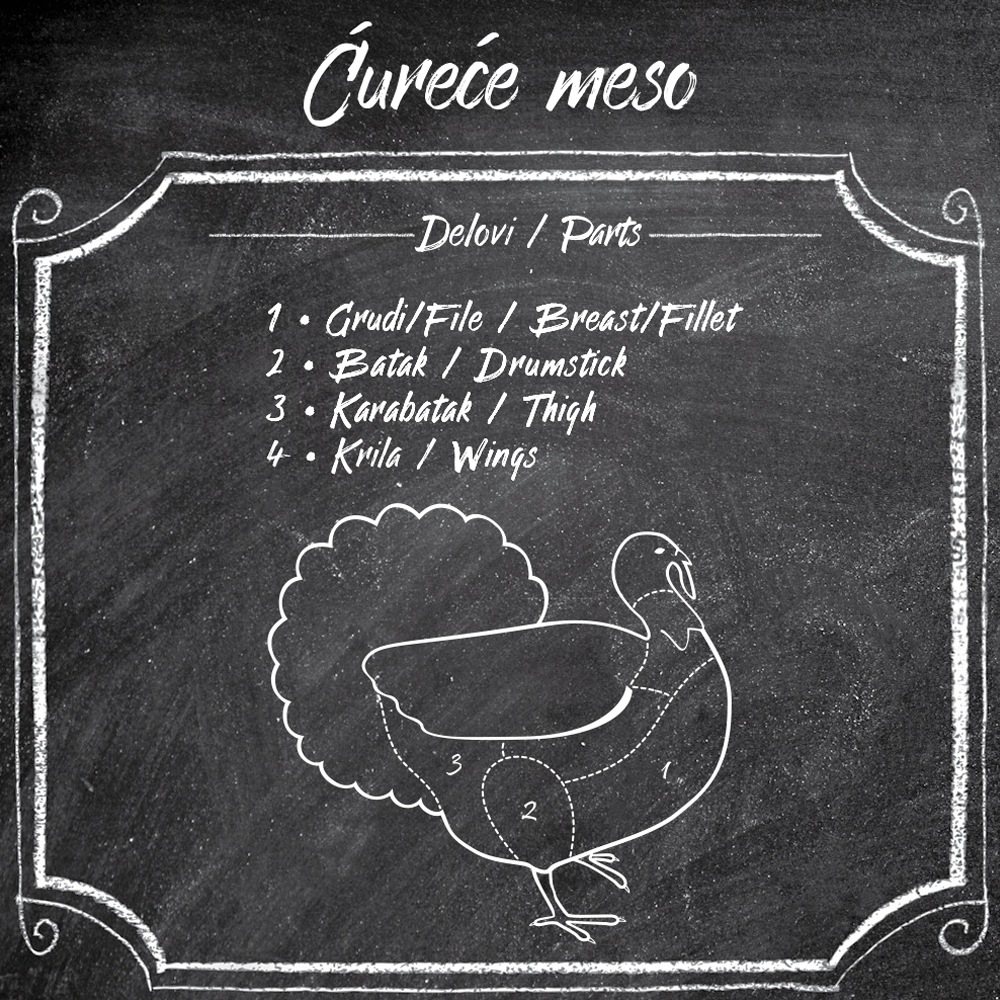 Ćureće meso
Delovi / Parts
1 • Grudi/File / Breast/Fillet
2 • Batak / Drumstick
3 • Karabatak / Thigh
4 • Krila / Wings
3
1
2